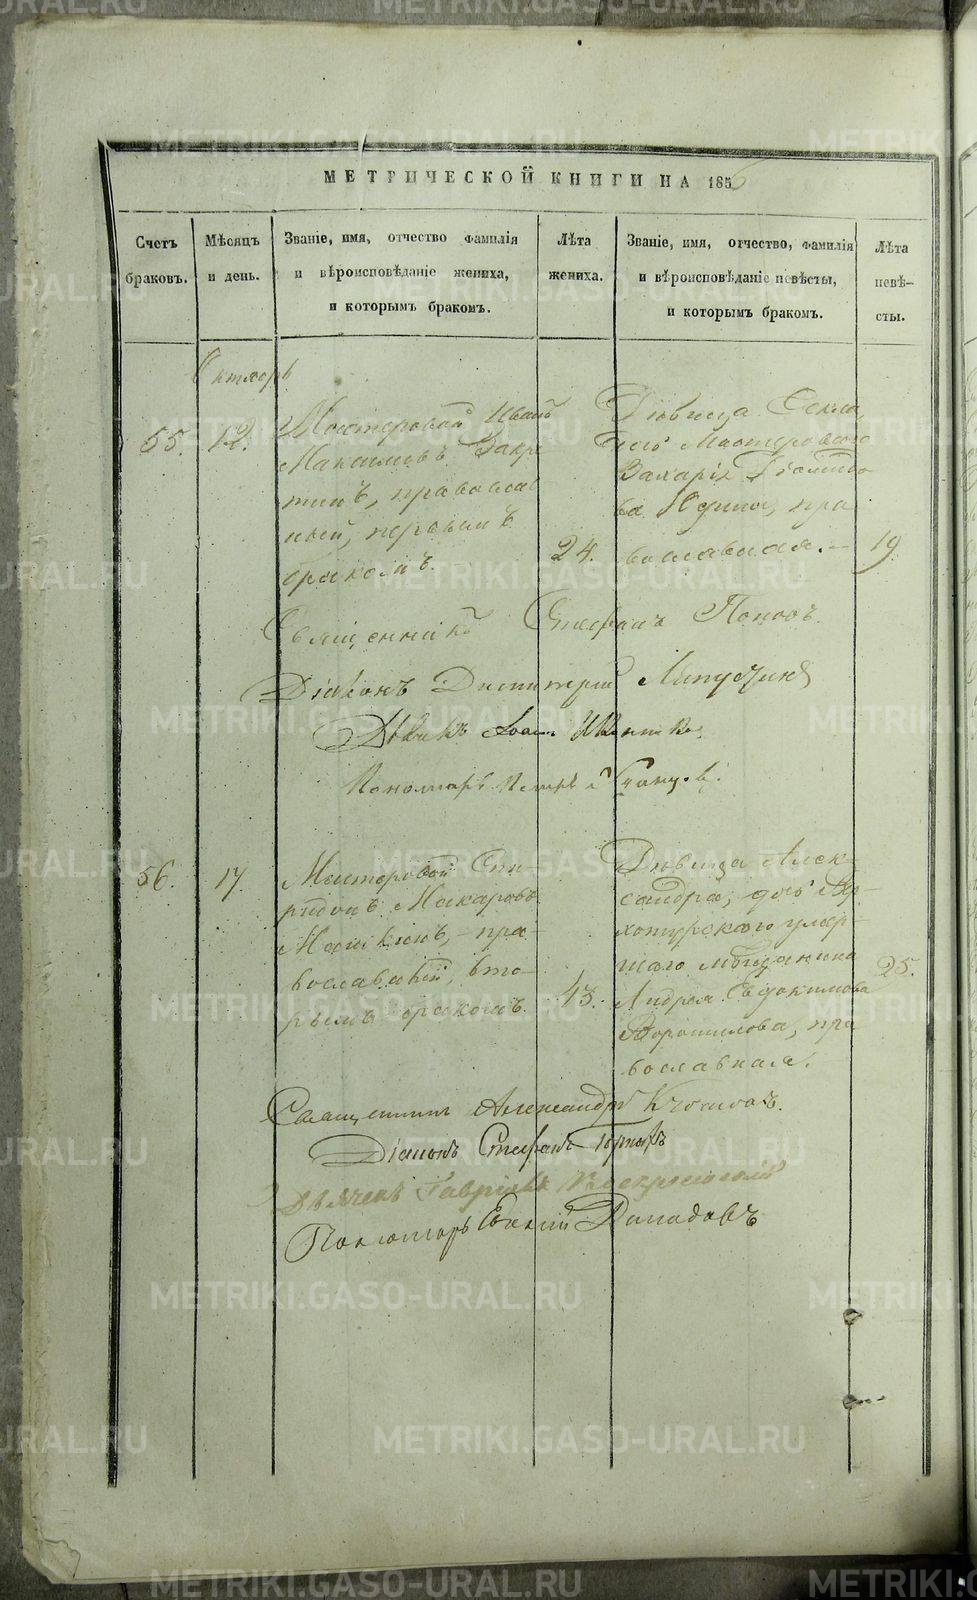 МЕТРИЧЕСКОЙ КНИГИ НА 1856
Счетъ браковъ.
Мѣсяцъ и день.
Званіе, имя, отчество фамилія
и вѣроисповѣданіе жениха,
и которымъ бракомъ.
Лѣта жениха.
Званіе, имя, отчество, фамилія
и вѣроисповѣданіе невѣсты,
и которымъ бракомъ.
Лѣта невѣ-
сты.
Октябрь
55. 12.
Мастеровой Иванъ
Максимовъ
православ
ный, первымъ
бракомъ.
24.
Дѣвица Фекла,
дочь Мастероваго
Захарія
ва Юдина, пра
вославная.—
19
Священникъ Стефанъ Поповъ.
Діаконъ Димитрій
Дьякъ Іоаннъ
Пономарь Петръ
56. 17.
Мастеровой Спи-
ридонъ Макаровъ
пра-
вославный, вто-
рымъ бракомъ.
43.
Дѣвица Алек-
сандра, дочь Вер-
хотурскаго умер-
шаго мѣщанина
Андрея Евдокимова
Ворошилова, пра
вославная.
25.
Священникъ Александръ
Діаконъ Стефанъ
Дьячекъ Гавріилъ
Пономарь
METRIKI.GASO-URAL.RU